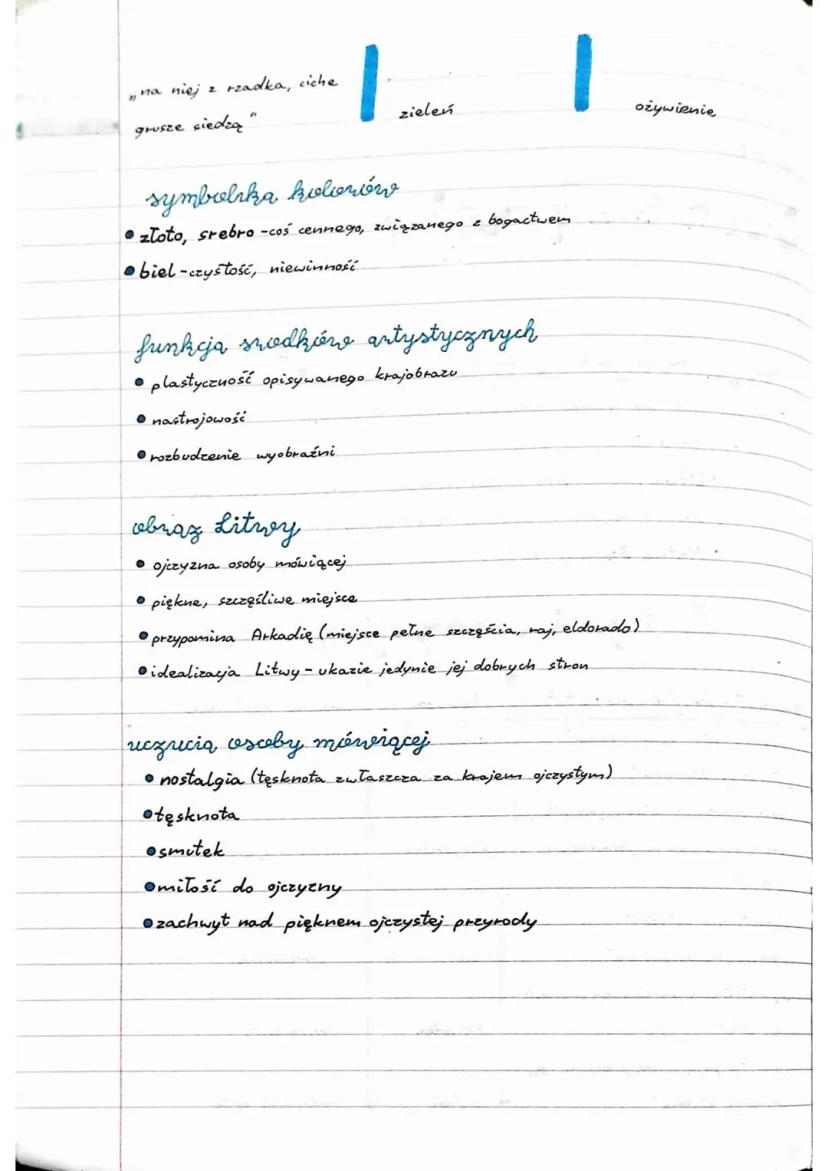 „na niej z rzadka, ciche
grusze siedzą"
zieleń
ożywienie
symbolika kolorów
złoto, srebro - coś cennego, związanego z bogactwem
biel - czystość, niewinność
funkcja środków artystycznych
plastyczność opisywanego krajobrazu
nastrojowość
rozbudzenie wyobraźni
obraz Litwy
ojczyzna osoby mówiącej
piękne, szczęśliwe miejsce
przypomina Arkadię (miejsce pełne szczęścia, raj, eldorado)
idealizacja Litwy - ukazie jedynie jej dobrych stron
uczucia osoby mówiącej
nostalgia (tęsknota zwłaszcza za krajem ojczystym)
tęsknota
smutek
miłość do ojczyzny
zachwyt nad pięknem ojczystej przyrody